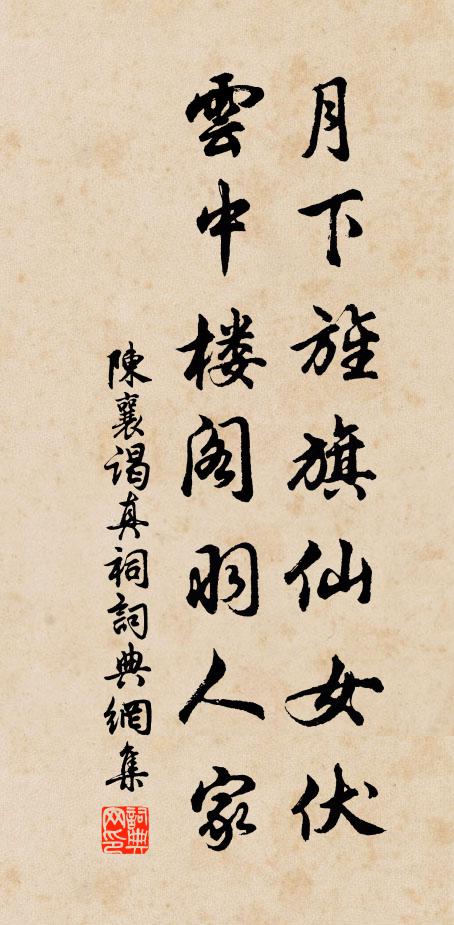 月下旌旗仙女伏
雲中楼阁羽人家
陳襄谒真祠詞典網集
詞典网印